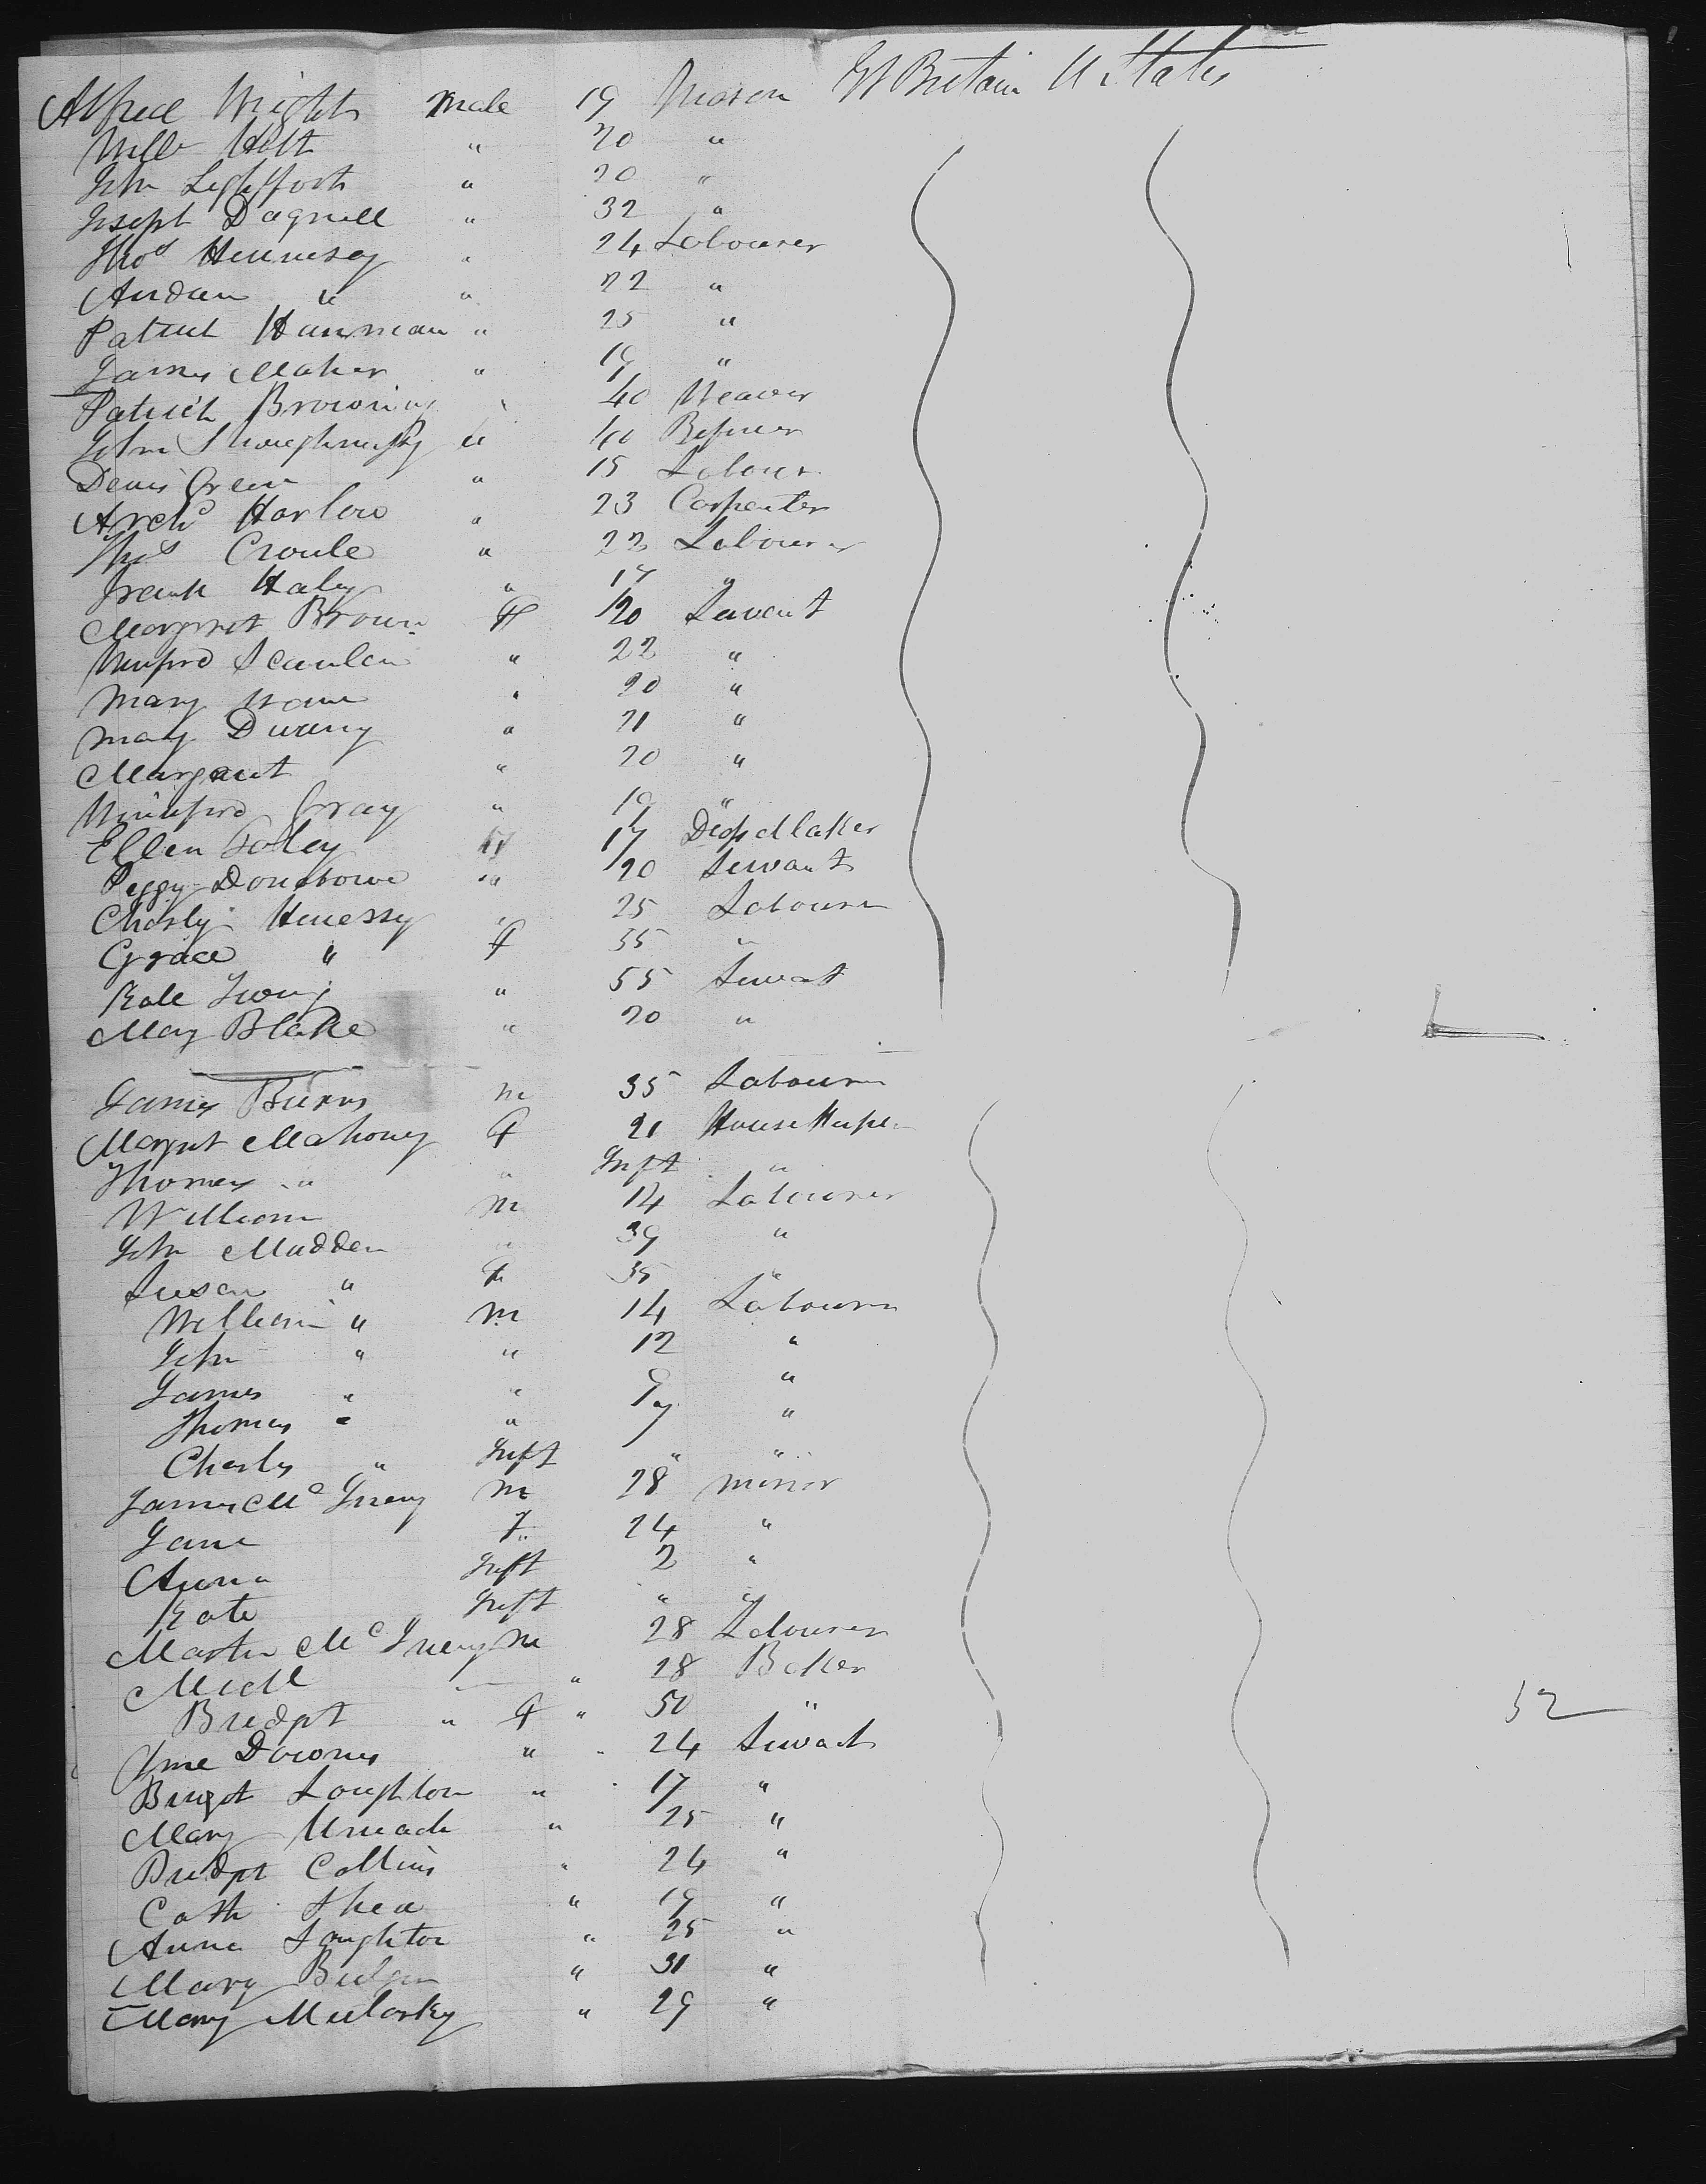 Alfred Wright male 19 Mason Gt Britain U States
Will Holt " 20 "
John Lightfoot " 20 "
Joseph Dagnell " 32 "
Thos Hennesey " 24 Labourer
" " 22 "
Patrick " 25 "
James Maher " 19 "
Patrick Browning " 40 Weaver
John Shaughnessy " 40
Denis Green " 15 Labour
Archd Harlow " 23 Carpenter
Thos " 22 Labourer
Frank Haley " 17 "
Margret Brown F 20 Servant
Winfred Scanlan " 22 "
Mary " 20 "
Mary " 21 "
Margaret " 20 "
Winifred Gray " 19 "
Ellen Foley " 17 DressMaker
Peggy " 20 Servant
Charly Henessy " 25 Labourer
Grace " F 35 "
" 55 Servant
Mary Blake " 20 "
James Burns m 35 Labourer
Margret Mahoney F 21 HouseKeeper
Thomas " " Inft "
William m 14 Labourer
John Madden " 39 "
Susan " F 35 "
William " m 14 Labourer
John " " 12 "
James " " 9 "
Thomas " " 7 "
Charles " Inft " "
James Mc m 28 minor
Jane F 24 "
Anna Inft 2 "
Kate Inft " "
Martin Mc m 28 Labourer
Michl " 28 Baker
Bridgt " F " 50 "
52
Downes " " 24 Servant
Bridgt Loughton " 17 "
Mary " 25 "
Bridgt Collins " 24 "
Cath Shea " 19 "
Anna Loughton " 25 "
Mary " 31 "
Mary Mularky " 29 "